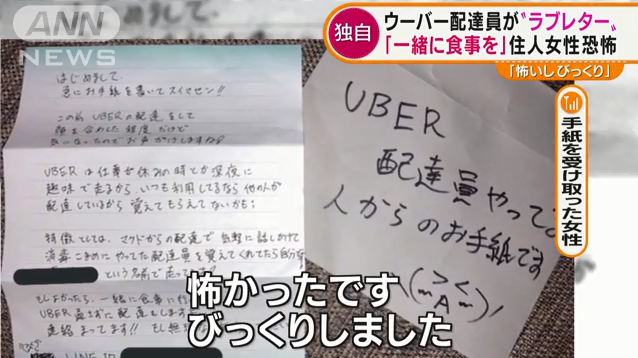 ANN
NEWS
独自
ウーバー配達員が〝ラブレター〟
「一緒に食事を」住人女性恐怖
「怖いしびっくり」
手紙を受け取った女性
はじめまして
急にお手紙を書いてスイマセン!!
この前 UBERの配達をして
顔を合わした程度だけど
UBERは仕事が休みの時とか深夜に
趣味で走るから いつも利用してるなら他の人が
配達しているから覚えてもらえてないかも
特徴としては、マクドからの配達で気軽に話しかけて
消毒こまめにやってた配達員を覚えてくれてたら自分
という名前で走って
もしよかったら、一緒に食事に
UBER
連絡まってます!! もし無
LINE ID
UBER
配達員やって
人からのお手紙です
怖かったです
びっくりしました